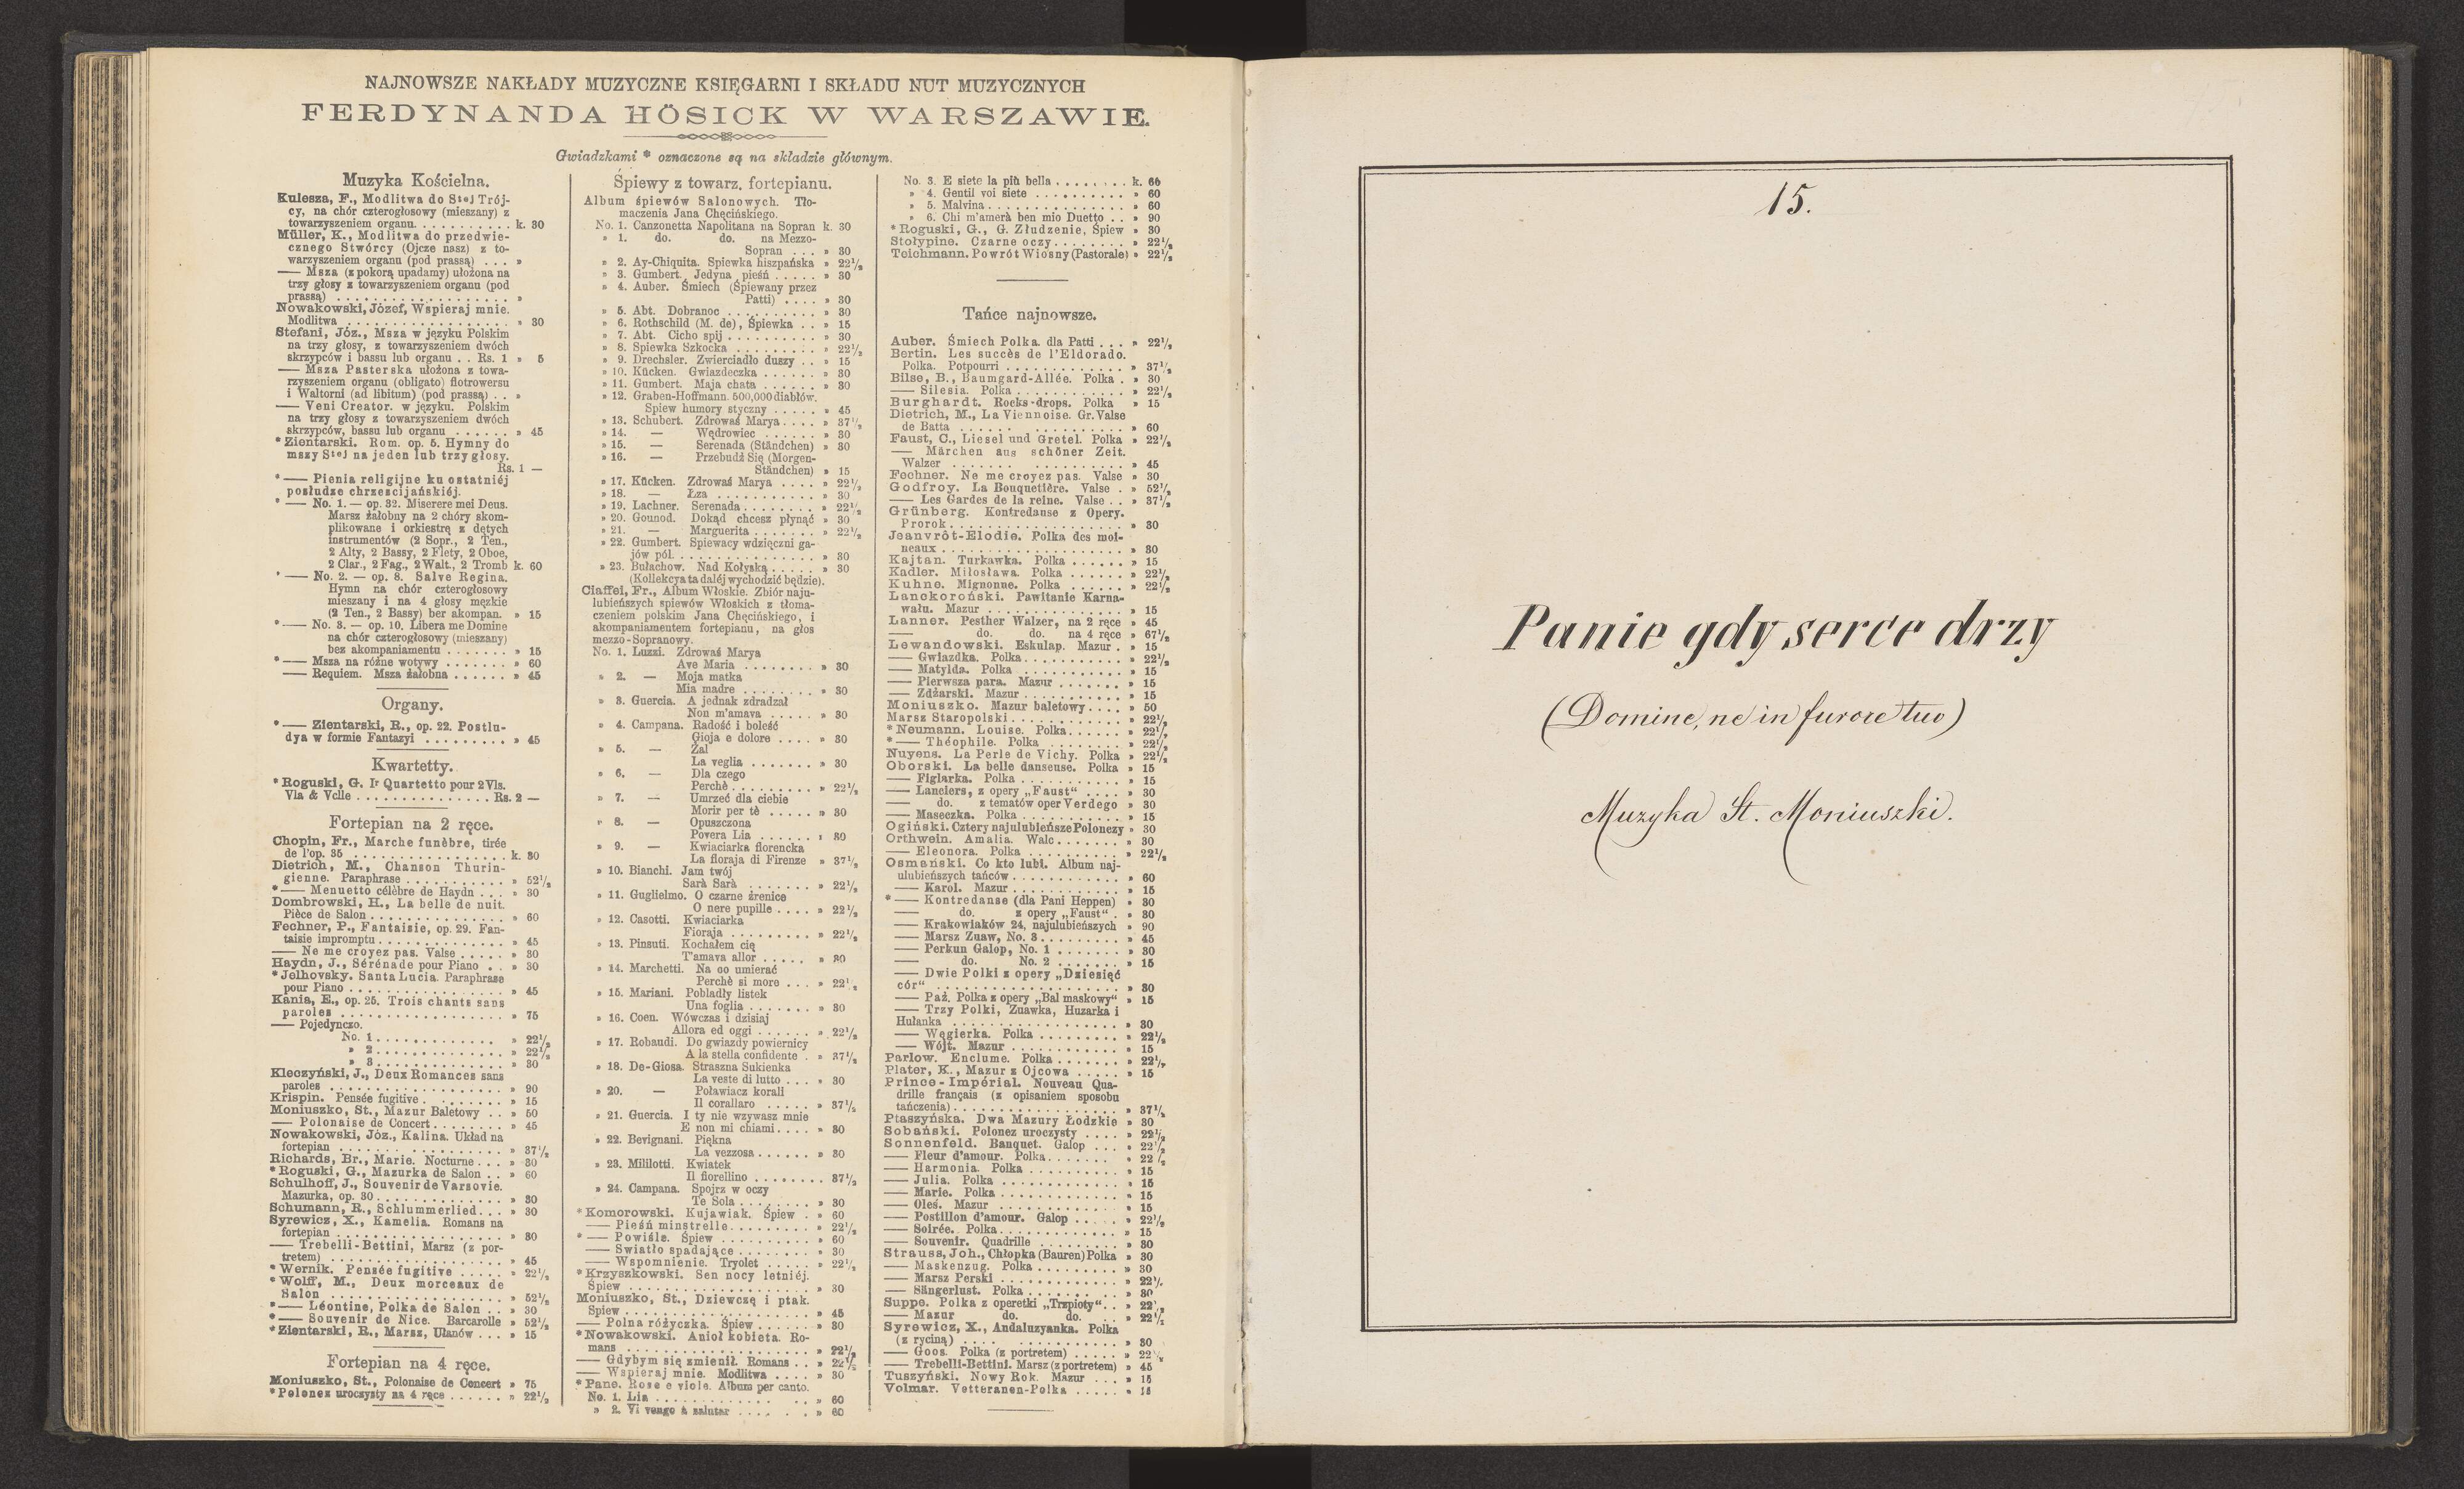 NAJNOWSZE NAKŁADY MUZYCZNE KSIĘGARNI I SKŁADU NUT MUZYCZNYCH
FERDYNANDA HÖSICK W WARSZAWIE.
Gwiadzkami * oznaczone są na składzie głównym.
Muzyka Kościelna.
Kulesza, F., Modlitwa do Stej Trój-
cy, na chór czterogłosowy (mieszany) z
towarzyszeniem organu. . . . . . . . . . . k. 30
Müller, K., Modlitwa do przedwie-
cznego Stwórcy (Ojcze nasz) z to-
warzyszeniem organu (pod prassą) . . . »
— Msza (z pokorą upadamy) ułożona na
trzy głosy z towarzyszeniem organu (pod
prassą) . . . . . . . . . . »
Nowakowski, Józef, Wspieraj mnie.
Modlitwa . . . . . . . . . . » 30
Stefani, Józ., Msza w języku Polskim
na trzy głosy, z towarzyszeniem dwóch
skrzypców i bassu lub organu . . Rs. 1 » 5
— Msza Pasterska ułożona z towa-
rzyszeniem organu (obligato) flotrowersu
i Waltorni (ad libitum) (pod prassą) . . »
— Veni Creator. w języku. Polskim
na trzy głosy z towarzyszeniem dwóch
skrzypców, bassu lub organu . . . . . . » 45
*Zientarski. Rom. op. 5. Hymny do
mszy Stej na jeden lub trzy głosy.
Rs. 1 —
*— Pienia religijne ku ostatniéj
posłudze chrześcijańskiéj.
*— No. 1. — op. 32. Miserere mei Deus.
Marsz żałobny na 2 chóry skom-
plikowane i orkiestrę z dętych
instrumentów (2 Sopr., 2 Ten.,
2 Alty, 2 Bassy, 2 Flety, 2 Oboe,
2 Clar., 2 Fag., 2 Walt., 2 Tromb k. 60
*— No. 2. — op. 8. Salve Regina.
Hymn na chór czterogłosowy
mieszany i na 4 głosy męzkie
(2 Ten., 2 Bassy) ber akompan. » 15
*— No. 3. — op. 10. Libera me Domine
na chór czterogłosowy (mieszany)
bez akompaniamentu . . . . . . . » 15
*— Msza na różne wotywy . . . . . . . » 60
— Requiem. Msza żałobna . . . . . . » 45
Organy.
*— Zientarski, R., op. 22. Postlu-
dya w formie Fantazyi . . . . . . . . . » 45
Kwartetty.
*Roguski, G. Ir Quartetto pour 2 Vls.
Vla & Vclle . . . . . . . . . . Rs. 2 —
Fortepian na 2 ręce.
Chopin, Fr., Marche funèbre, tirée
de l'op. 35 . . . . . . . . . . k. 30
Dietrich, M., Chanson Thurin-
gienne. Paraphrase . . . . . . . . . . » 52½
*— Menuetto célèbre de Haydn . . . » 30
Dombrowski, H., La belle de nuit.
Pièce de Salon . . . . . . . . . . » 60
Fechner, P., Fantaisie, op. 29. Fan-
taisie impromptu . . . . . . . . . . » 45
— Ne me croyez pas. Valse . . . . . » 30
Haydn, J., Sérénade pour Piano . . » 30
*Jelhovsky. Santa Lucia. Paraphrase
pour Piano . . . . . . . . . . » 45
Kania, E., op. 25. Trois chants sans
paroles . . . . . . . . . . » 75
— Pojedynczo.
No. 1 . . . . . . . . . . » 22½
» 2 . . . . . . . . . . » 22½
» 3 . . . . . . . . . . » 30
Kleczyński, J., Deux Romances sans
paroles . . . . . . . . . . » 90
Krispin. Pensée fugitive . . . . . . . . » 15
Moniuszko, St., Mazur Baletowy . . » 50
— Polonaise de Concert . . . . . . . . » 45
Nowakowski, Józ., Kalina. Układ na
fortepian . . . . . . . . . . » 37½
Richards, Br., Marie. Nocturne . . . » 30
*Roguski, G., Mazurka de Salon . . » 60
Schulhoff, J., Souvenir de Varsovie.
Mazurka, op. 30 . . . . . . . . . . » 30
Schumann, R., Schlummerlied . . . » 30
Syrewicz, X., Kamelia. Romans na
fortepian . . . . . . . . . . » 30
— Trebelli-Bettini, Marsz (z por-
tretem) . . . . . . . . . . » 45
*Wernik. Pensée fugitive . . . . . » 22½
*Wolff, M., Deux morceaux de
Salon . . . . . . . . . . » 52½
*— Léontine, Polka de Salon . . » 30
*— Souvenir de Nice. Barcarolle » 52½
*Zientarski, R., Marsz, Ułanów . . . » 15
Fortepian na 4 ręce.
Moniuszko, St., Polonaise de Concert » 75
*Polonez uroczysty na 4 ręce . . . . . . » 22½
Śpiewy z towarz. fortepianu.
Album śpiewów Salonowych. Tło-
maczenia Jana Chęcińskiego.
No. 1. Canzonetta Napolitana na Sopran k. 30
» 1. do. do. na Mezzo-
Sopran . . . » 30
» 2. Ay-Chiquita. Śpiewka hiszpańska » 22½
» 3. Gumbert. Jedyna pieśń . . . . . » 30
» 4. Auber. Śmiech (Śpiewany przez
Patti) . . . . » 30
» 5. Abt. Dobranoc . . . . . . . . . . » 30
» 6. Rothschild (M. de), Śpiewka . . » 15
» 7. Abt. Cicho spij . . . . . . . . . . » 30
» 8. Spiewka Szkocka . . . . . . . . . » 22½
» 9. Drechsler. Zwierciadło duszy . . » 15
» 10. Kücken. Gwiazdeczka . . . . . . » 30
» 11. Gumbert. Maja chata . . . . . . » 30
» 12. Graben-Hoffmann. 500,000 diabłów.
Spiew humory styczny . . . . . » 45
» 13. Schubert. Zdrowaś Marya . . . . » 37½
» 14. — Wędrowiec . . . . . . » 30
» 15. — Serenada (Ständchen) » 30
» 16. — Przebudź Się (Morgen-
Ständchen) » 15
» 17. Kücken. Zdrowaś Marya . . . . » 22½
» 18. — Łza . . . . . . . . . . » 30
» 19. Lachner. Serenada . . . . . . . . » 22½
» 20. Gounod. Dokąd chcesz płynąć » 30
» 21. — Marguerita . . . . . . . » 22½
» 22. Gumbert. Spiewacy wdzięczni ga-
jów pól. . . . . . . . . . . » 30
» 23. Bułachow. Nad Kołyską . . . . . » 30
(Kollekcya ta daléj wychodzić będzie).
Ciaffei, Fr., Album Włoskie. Zbiór naju-
lubieńszych spiewów Włoskich z tłoma-
czeniem polskim Jana Chęcińskiego, i
akompaniamentem fortepianu, na głos
mezzo-Sopranowy.
No. 1. Luzzi. Zdrowaś Marya
Ave Maria . . . . . . . . » 30
» 2. — Moja matka
Mia madre . . . . . . . . » 30
» 3. Guercia. A jednak zdradzał
Non m'amava . . . . . » 30
» 4. Campana. Radość i boleść
Gioja e dolore . . . . » 30
» 5. — Żal
La veglia . . . . . . . » 30
» 6. — Dla czego
Perchè . . . . . . . . . » 22½
» 7. — Umrzeć dla ciebie
Morir per tè . . . . . » 30
» 8. — Opuszczona
Povera Lia . . . . . . » 30
» 9. — Kwiaciarka florencka
La floraja di Firenze » 37½
» 10. Bianchi. Jam twój
Sarà Sarà . . . . . . . » 22½
» 11. Guglielmo. O czarne źrenice
O nere pupille . . . . » 22½
» 12. Casotti. Kwiaciarka
Fioraja . . . . . . . . . » 22½
» 13. Pinsuti. Kochałem cię
T'amava allor . . . . . » 30
» 14. Marchetti. Na co umierać
Perchè si more . . . » 22½
» 15. Mariani. Pobladły listek
Una foglia . . . . . . . » 30
» 16. Coen. Wówczas i dzisiaj
Allora ed oggi . . . . . . » 22½
» 17. Robaudi. Do gwiazdy powiernicy
A la stella confidente . » 37½
» 18. De-Giosa. Straszna Sukienka
La veste di lutto . . . » 30
» 20. — Poławiacz korali
Il corallaro . . . . . » 37½
» 21. Guercia. I ty nie wzywasz mnie
E non mi chiami . . . . » 30
» 22. Bevignani. Piękna
La vezzosa . . . . . . » 30
» 23. Mililotti. Kwiatek
Il fiorellino . . . . . . . . 37½
» 24. Campana. Spojrz w oczy
Te Sola . . . . . . . . » 30
*Komorowski. Kujawiak. Śpiew . » 60
— Pieśń minstrelle . . . . . . . . . » 22½
*— Powiśle. Śpiew . . . . . . . . . . » 60
— Swiatło spadające . . . . . . . . » 30
— Wspomnienie. Tryolet . . . . . » 22½
*Krzyszkowski. Sen nocy letniéj.
Śpiew . . . . . . . . . . » 30
Moniuszko, St., Dziewczę i ptak.
Spiew . . . . . . . . . . » 45
— Polna różyczka. Śpiew . . . . . . » 30
*Nowakowski. Anioł kobieta. Ro-
mans . . . . . . . . . . » 22½
— Gdybym się zmienił. Romans . . » 22½
— Wspieraj mnie. Modlitwa . . . . » 30
*Pane. Rose e viole. Album per canto.
No. 1. Lia . . . . . . . . . . » 60
» 2. Vi vengo à salutar . . . . . . » 60
No. 3. E siete la più bella . . . . . . . . k. 60
» 4. Gentil voi siete . . . . . . . . . . » 60
» 5. Malvina . . . . . . . . . . » 60
» 6. Chi m'amerà ben mio Duetto . . » 90
*Roguski, G., G. Złudzenie, Śpiew » 30
Stołypine. Czarne oczy . . . . . . . . » 22½
Teichmann. Powrót Wiosny (Pastorale) » 22½
Tańce najnowsze.
Auber. Śmiech Polka. dla Patti . . . » 22½
Bertin. Les succès de l'Eldorado.
Polka. Potpourri . . . . . . . . . . » 37½
Bilse, B., Baumgard-Allée. Polka . » 30
— Silesia. Polka . . . . . . . . . . » 22½
Burghardt. Rocks-drops. Polka » 15
Dietrich, M., La Viennoise. Gr. Valse
de Batta . . . . . . . . . . » 60
Faust, C., Liesel und Gretel. Polka » 22½
— Märchen aus schöner Zeit.
Walzer . . . . . . . . . . » 45
Fechner. Ne me croyez pas. Valse » 30
Godfroy. La Bouquetière. Valse . » 52½
— Les Gardes de la reine. Valse . . » 37½
Grünberg. Kontredanse z Opery.
Prorok . . . . . . . . . . » 30
Jeanvrôt-Elodie. Polka des moi-
neaux . . . . . . . . . . » 30
Kajtan. Turkawka. Polka . . . . . . » 15
Kadler. Miłosława. Polka . . . . . . » 22½
Kuhne. Mignonne. Polka . . . . . . » 22½
Lanckoroński. Pawitanie Karna-
wału. Mazur . . . . . . . . . . » 15
Lanner. Pesther Walzer, na 2 ręce » 45
— do. do. na 4 ręce » 67½
Lewandowski. Eskulap. Mazur . » 15
— Gwiazdka. Polka . . . . . . . . . . » 22½
— Matylda. Polka . . . . . . . . . . » 15
— Pierwsza para. Mazur . . . . . . . » 15
— Zdżarski. Mazur . . . . . . . . . . » 15
Moniuszko. Mazur baletowy . . . . » 50
Marsz Staropolski . . . . . . . . . . » 22½
*Neumann. Louise. Polka . . . . . . » 22½
*— Théophile. Polka . . . . . . . . . » 22½
Nuyens. La Perle de Vichy. Polka » 22½
Oborski. La belle danseuse. Polka » 15
— Figlarka. Polka . . . . . . . . . . » 15
— Lanciers, z opery „Faust" . . . . » 30
— do. z tematów oper Verdego » 30
— Maseczka. Polka . . . . . . . . . . » 15
Ogiński. Cztery najulubieńsze Polonezy » 30
Orthwein. Amalia. Walc . . . . . . . » 30
— Eleonora. Polka . . . . . . . . . . » 22½
Osmański. Co kto lubi. Album naj-
ulubieńszych tańców . . . . . . . . . . » 60
— Karol. Mazur . . . . . . . . . . » 15
*— Kontredanse (dla Pani Heppen) » 30
— do. z opery „Faust" . » 30
— Krakowiaków 24, najulubieńszych » 90
— Marsz Zuaw, No. 3 . . . . . . . . . » 45
— Perkun Galop, No. 1 . . . . . . . » 30
— do. No. 2 . . . . . . . » 15
— Dwie Polki z opery „Dziesięć
cór" . . . . . . . . . . » 30
— Paź. Polka z opery „Bal maskowy" » 15
— Trzy Polki, Zuawka, Huzarka i
Hułanka . . . . . . . . . . » 30
— Węgierka. Polka . . . . . . . . . . » 22½
— Wójt. Mazur . . . . . . . . . . » 15
Parlow. Enclume. Polka . . . . . . . » 22½
Plater, K., Mazur z Ojcowa . . . . . » 15
Prince-Impérial. Nouveau Qua-
drille français (z opisaniem sposobu
tańczenia) . . . . . . . . . . » 37½
Ptaszyńska. Dwa Mazury Łodzkie » 30
Sobański. Polonez uroczysty . . . . » 22½
Sonnenfeld. Banquet. Galop . . . » 22½
— Fleur d'amour. Polka . . . . . . . » 22½
— Harmonia. Polka . . . . . . . . . . » 15
— Julia. Polka . . . . . . . . . . » 15
— Marie. Polka . . . . . . . . . . » 15
— Oleś. Mazur . . . . . . . . . . » 15
— Postillon d'amour. Galop . . . . . » 22½
— Soirée. Polka . . . . . . . . . . » 15
— Souvenir. Quadrille . . . . . . . . . » 30
Strauss, Joh., Chłopka (Bauren) Polka » 30
— Maskenzug. Polka . . . . . . . . . . » 30
— Marsz Perski . . . . . . . . . . » 22½
— Sängerlust. Polka . . . . . . . . . . » 30
Suppe. Polka z operetki „Trzpioty" . . » 22½
— Mazur do. do. . . » 22½
Syrewicz, X., Andaluzyanka. Polka
(z ryciną) . . . . . . . . . . » 30
— Goos. Polka (z portretem) . . . . . » 22½
— Trebelli-Bettini. Marsz (z portretem) » 45
Tuszyński. Nowy Rok. Mazur . . . » 15
Volmar. Vetteranen-Polka . . . . . » 15
15.
Panie gdy serce drzy
(Domine, ne in furore tuo)
Muzyka St. Moniuszki.